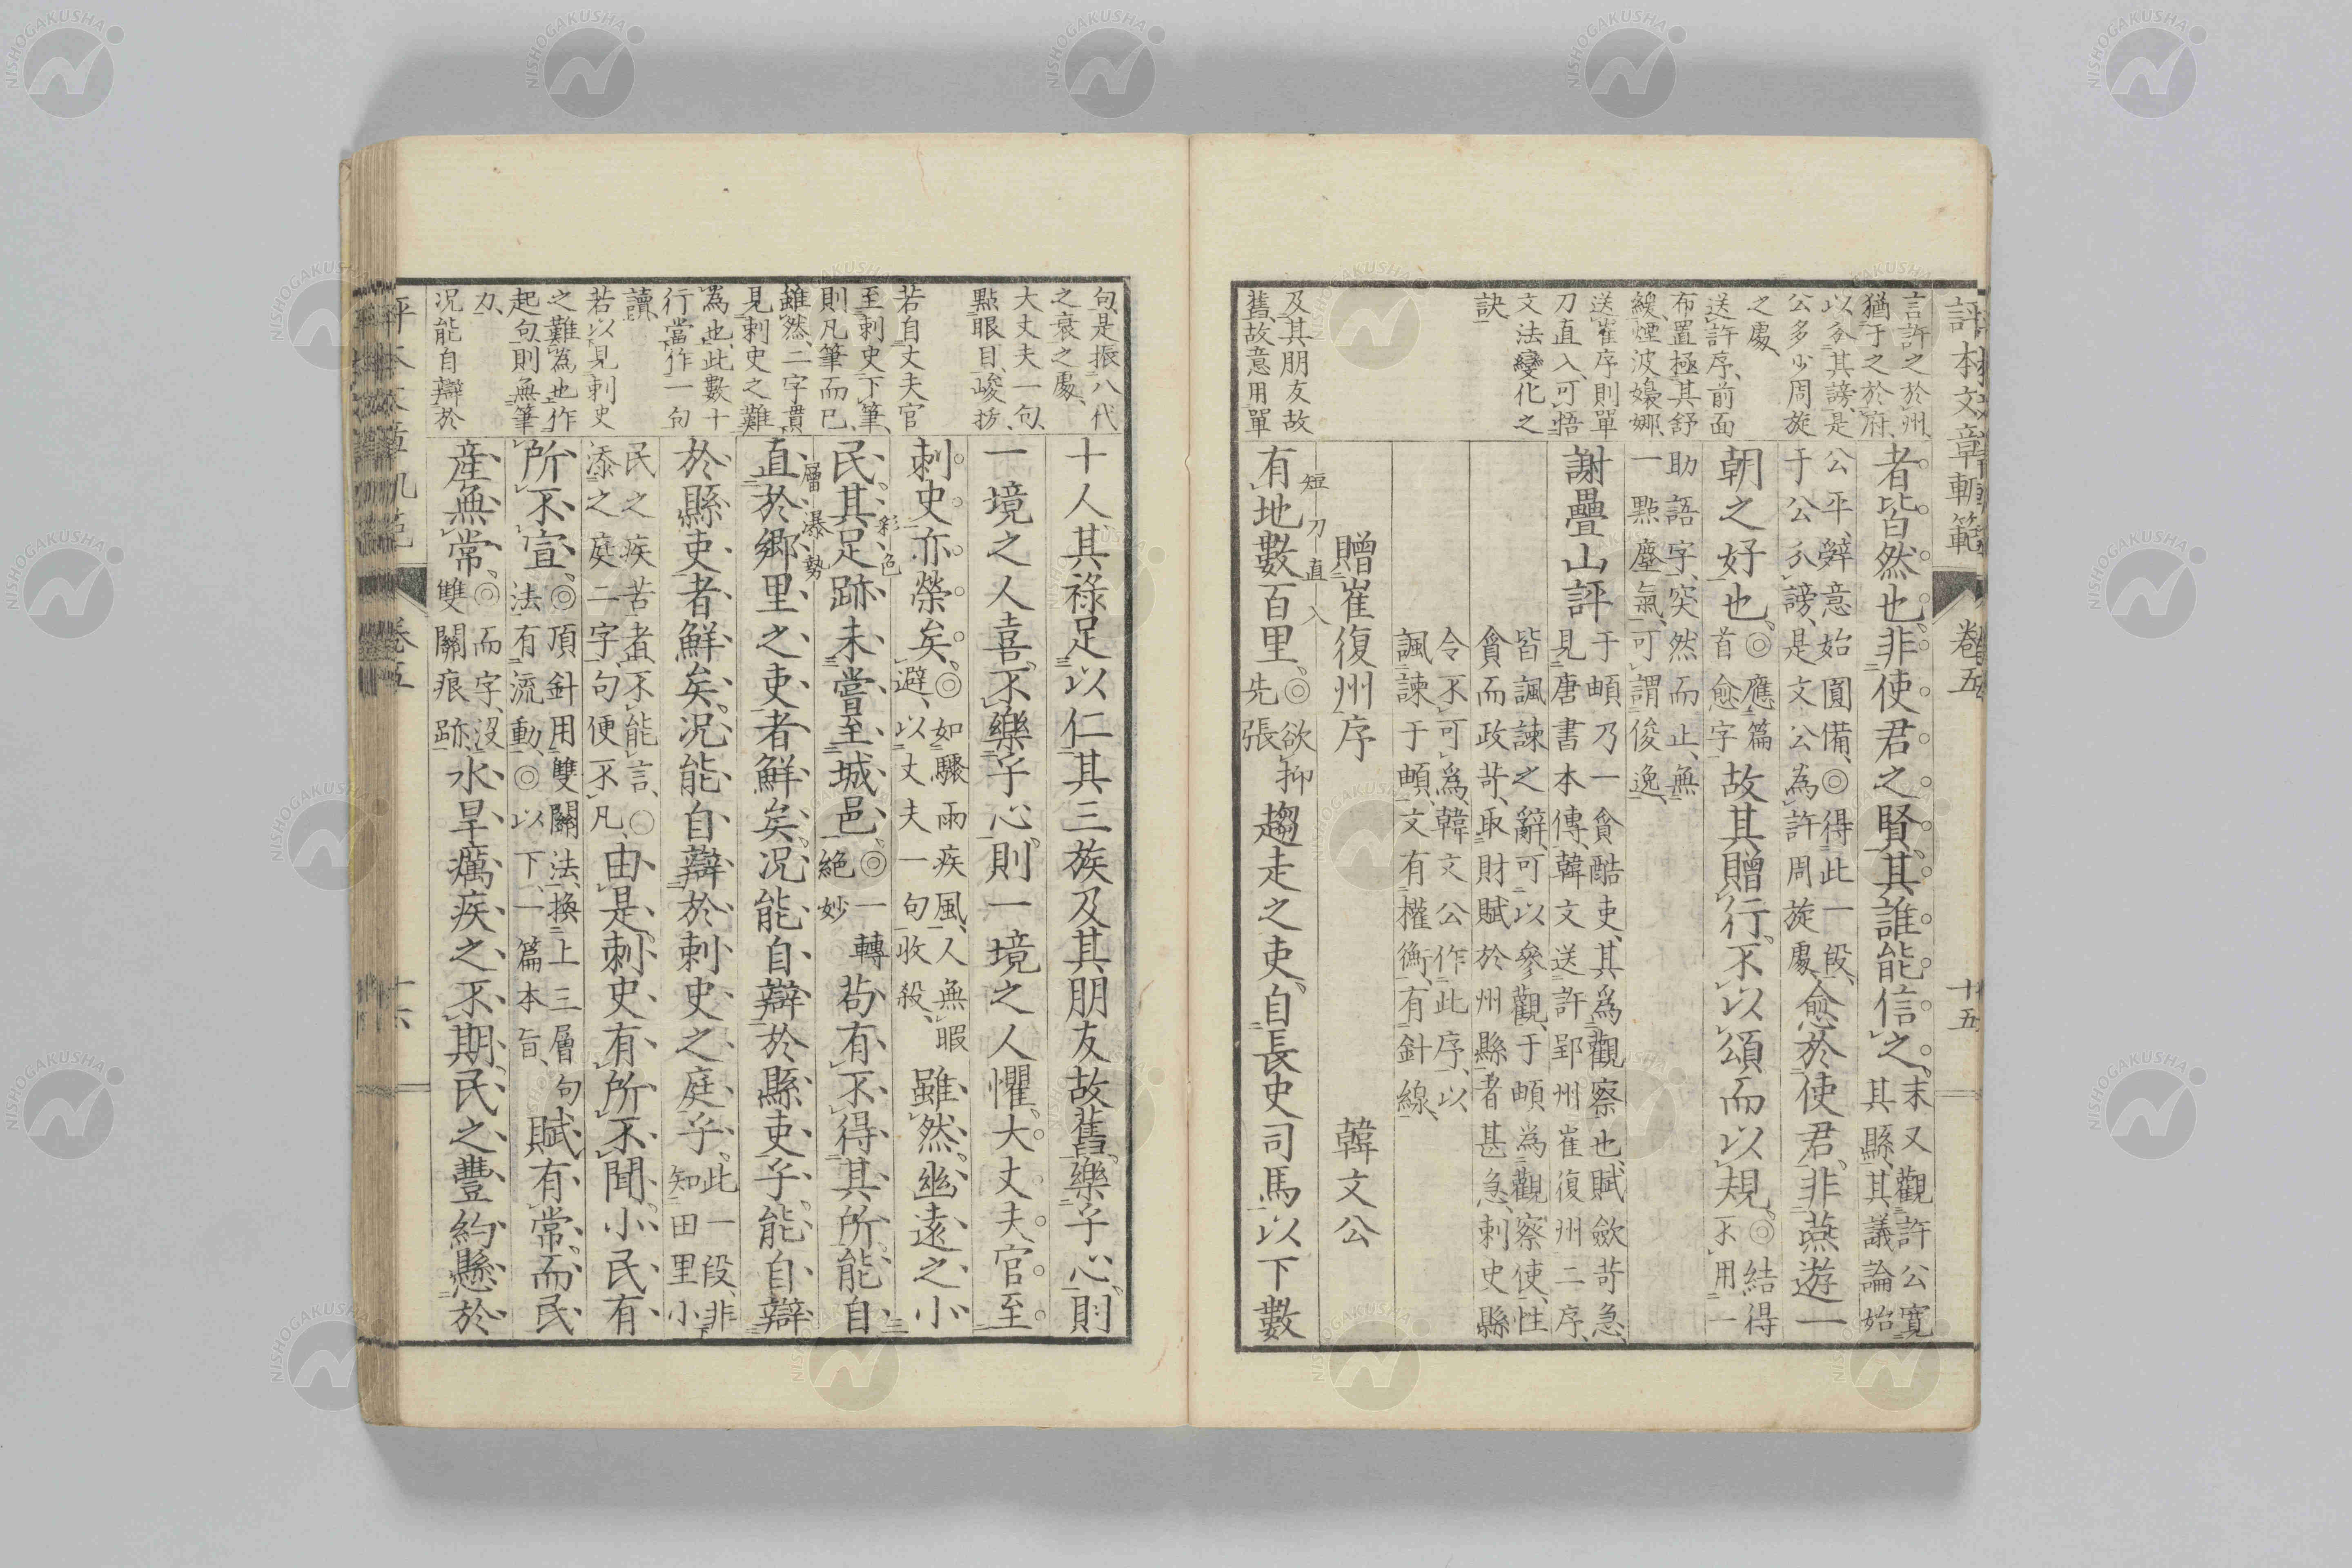 評本文章軌範
卷五
十五
言許之於州
猶于之於府
以分其謗是
公多少周旋
之處
送許序前面
布置極其舒
緩煙波嫋娜
送崔序則單
刀直入可悟
文法變化之
訣
及其朋友故
舊故意用單
者皆然也非使君之賢其誰能信之末又觀許公寬
其縣其議論始
公平辭意始圓備◎得此一段
于公分謗是文公為許周旋處愈於使君非燕遊一
朝之好也◎應篇
首愈字故其贈行不以頌而以規◎結得
不用一
助語字突然而止無
一點塵氣可謂俊逸
謝疊山評于頔乃一貪酷吏其爲觀察也賦斂苛急
見唐書本傳韓文送許郢州崔復州二序
皆諷諫之辭可以參觀于頔為觀察使性
貪而政苛取財賦於州縣者甚急刺史縣
令不可爲韓文公作此序以
諷諫于頔文有權衡有針線
贈崔復州序　韓文公
短刀直入
有地數百里◎欲抑
先張趨走之吏自長史司馬以下數
句是振八代
之衰之處
大丈夫一句
點眼目峻拔
若自丈夫官
至刺史下筆
則凡筆而已
雖然二字貫
見刺史之難
為也此數十
行當作一句
讀
若以見刺史
之難為也作
起句則無筆
力
況能自辯於
十人其祿足以仁其三族及其朋友故舊樂乎心則
一境之人喜不樂乎心則一境之人懼大丈夫官至
刺史亦榮矣◎如驟雨疾風人無暇
避以丈夫一句收殺雖然幽遠之小
彩色
民其足跡未嘗至城邑◎一轉
絕妙苟有不得其所能自
層瀑勢
直於鄉里之吏者鮮矣况能自辯於縣吏乎能自辯
於縣吏者鮮矣况能自辯於刺史之庭乎此一段非
知田里小
民之疾苦者不能言○
添之庭二字句便不凡由是刺史有所不聞小民有
所不宣◎頂針用雙關法換上三層句
法有流動◎以下一篇本旨賦有常而民
産無常◎而字沒
雙關痕跡水旱癘疾之不期民之豐約懸於
卷五
十六